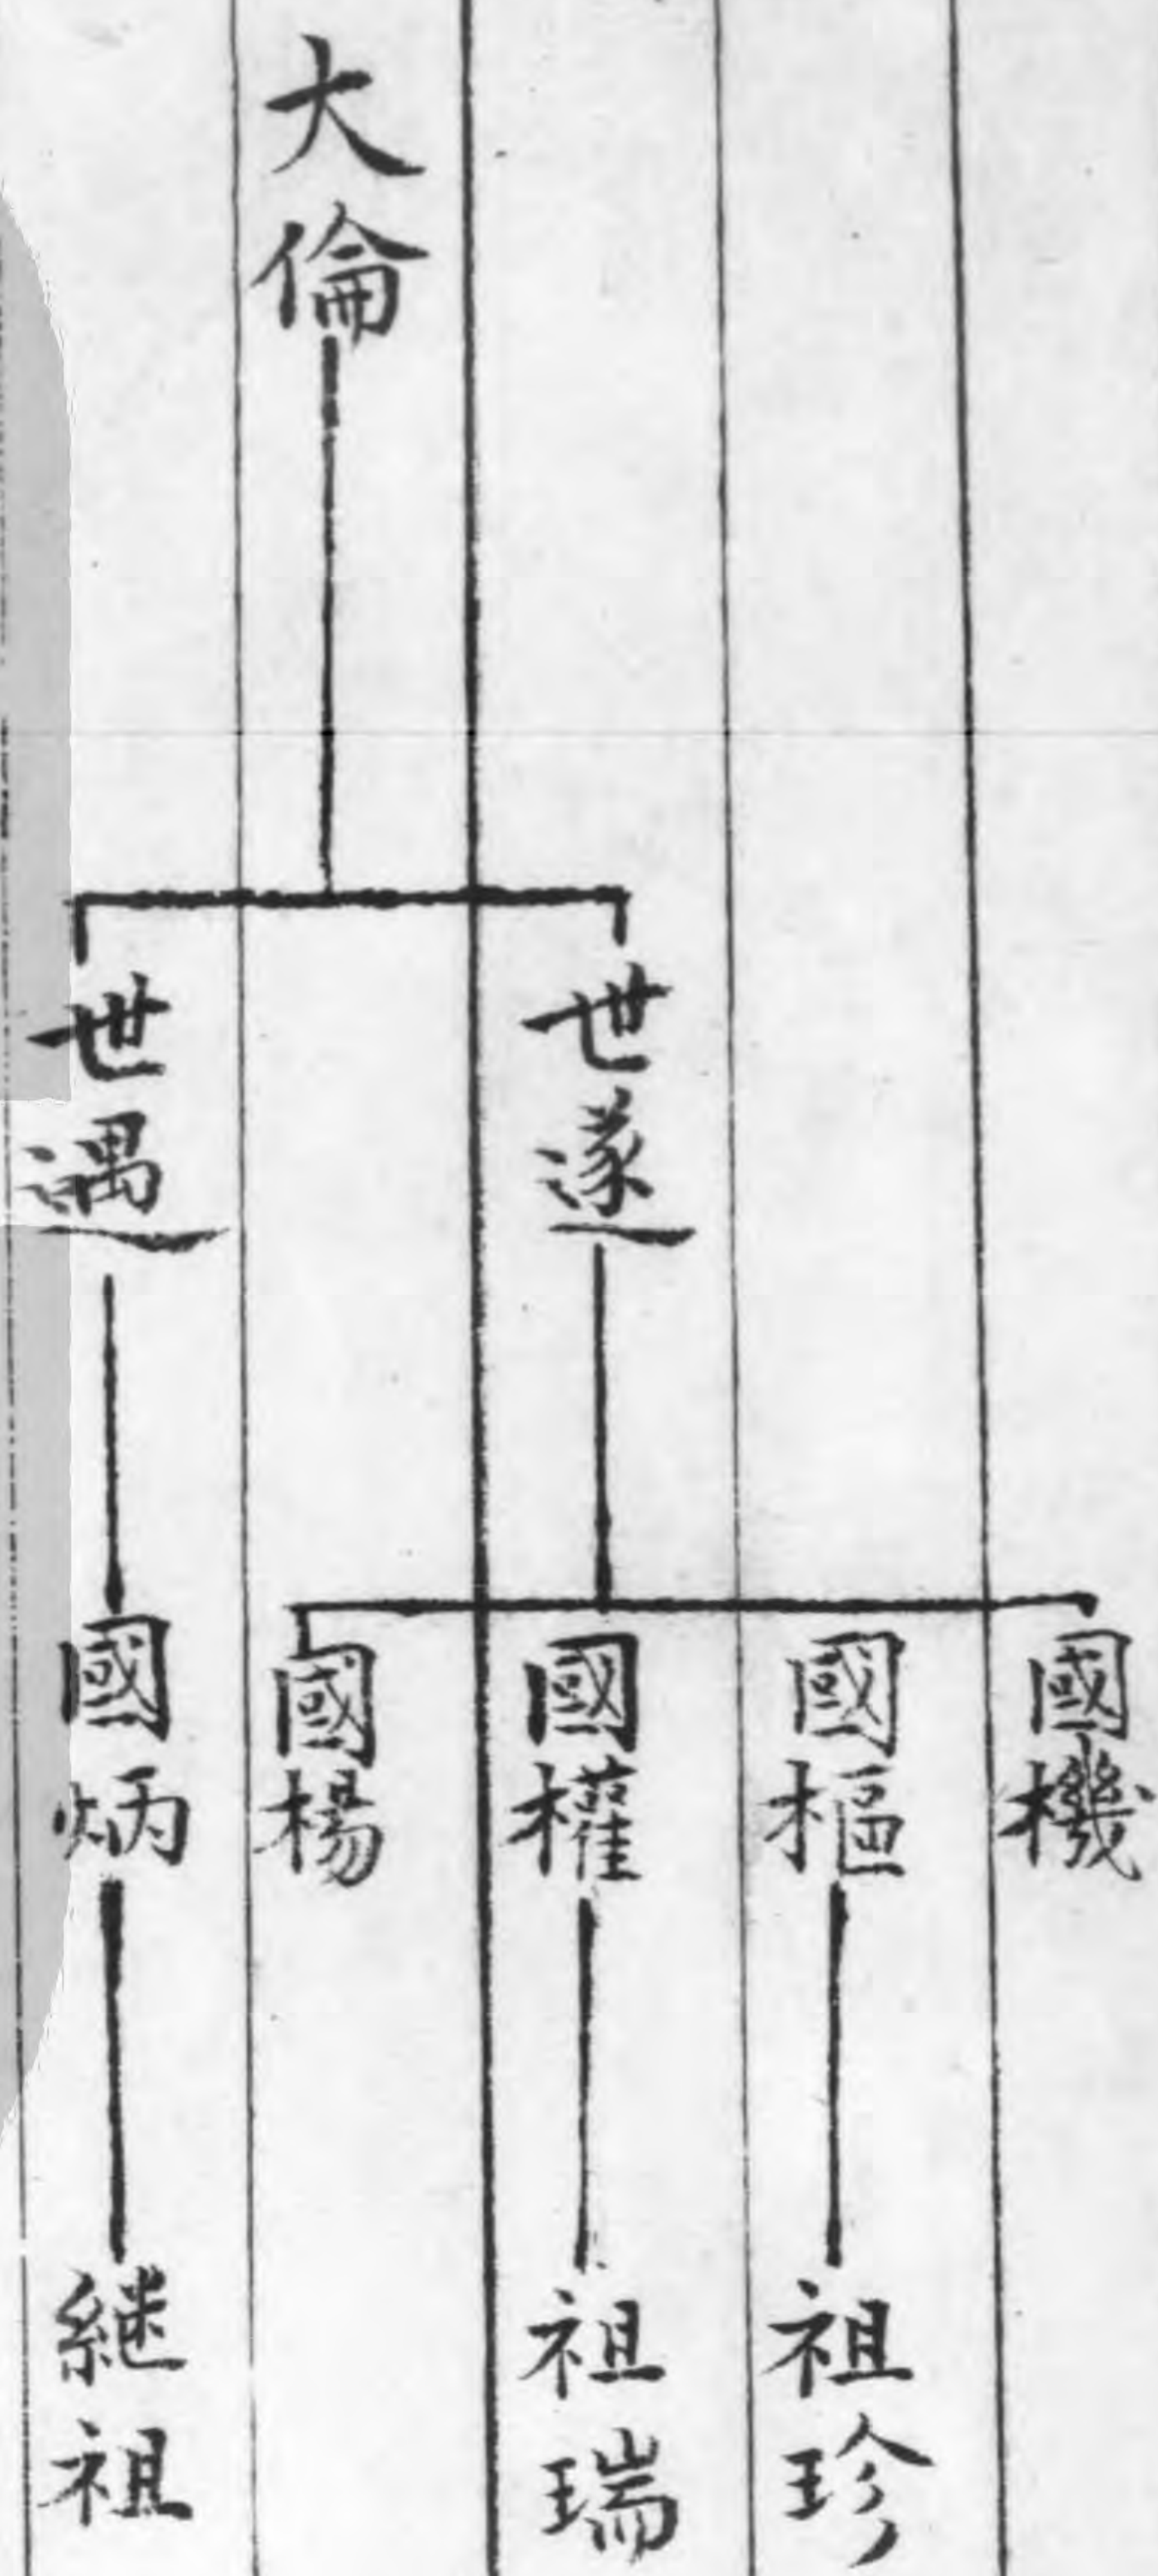 大倫
世遂
世遇
國機
國樞
國權
國楊
國炳
祖珍
祖瑞
継祖